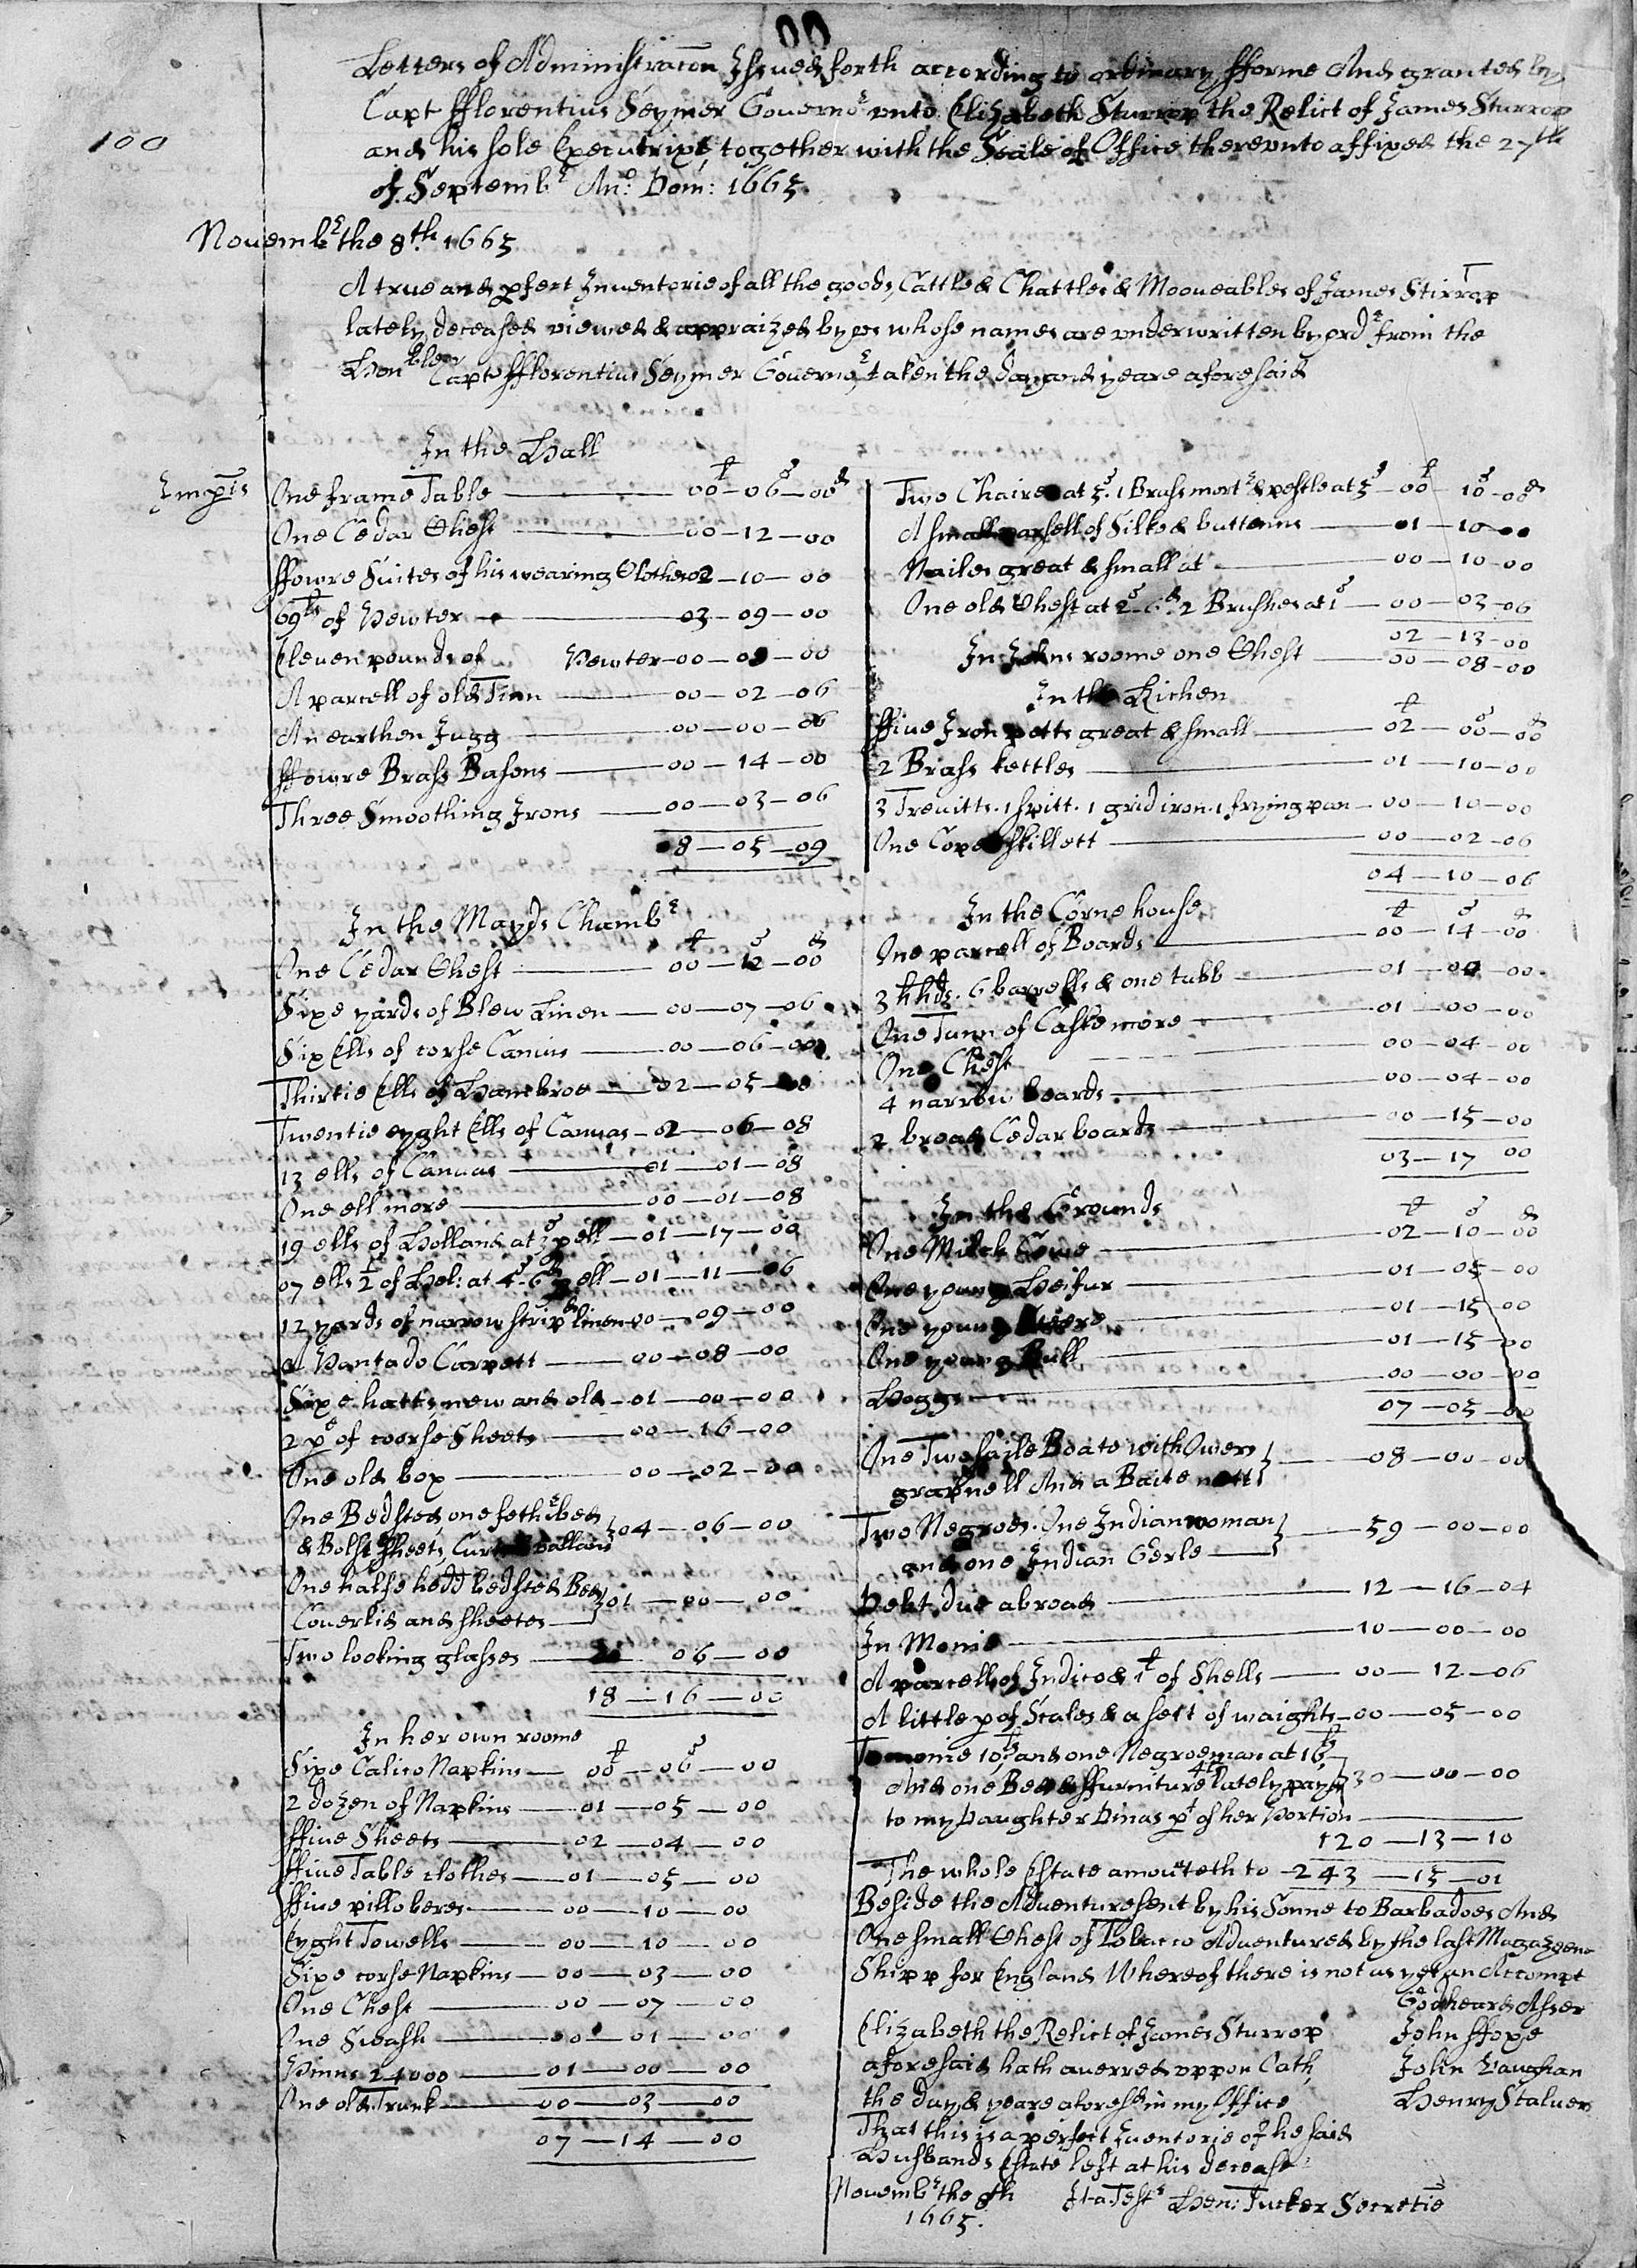 100
Letters of Administracon Issued forth according to ordinary fforme And granted by
Capt fflorentius Seymer Governor vnto Elizabeth Sturrop the Relict of James Sturrop
and his sole Executrixe together with the Seale of Office therevnto affixed the 27th
of Septembr Ano Dom: 1665.
Novembr the 8th 1665
A true and pfect Inventorie of all the goods, Cattle & Chattles & Mooveables of James Stirrop
lately deceased viewed & appraized by vs whose names are vnderwritten by ordr from the
Honble Capt fflorentius Seymer Governor taken the day and yeare aforesaid
In the Hall
£ s d
Imprs One frame Table 00-06-00
One Cedar Chest 00-12-00
ffowre Suites of his wearing Clothes 02-10-00
69 lb of Pewter 03-09-00
Eleven pounds of Pewter 00-08-00
A parcell of old Tinn 00-02-06
An earthen Jugg 00-00-06
ffowre Brass Basons 00-14-00
Three Smoothing Irons 00-03-06
08-05-09
In the Mayds Chambr
£ s d
One Cedar Chest 00-12-00
Sixe yards of Blew Linen 00-07-06
Six Ells of corse Canvis 00-06-00
Thirtie Ells of Hambroe 02-05-00
Twentie eyght Ells of Canvas 02-06-08
13 ells of Canvas 01-01-08
One ell more 00-01-08
19 ells of Holland at 3s p ell 01-17-00
07 ells ½ of Hol: at 4s-6d p ell 01-11-06
12 yards of narrow stripd linen 00-09-00
A Pantado Carpett 00-08-00
Sixe hatts new and old 01-00-00
2 pe of coorse Sheets 00-16-00
One old box 00-02-00
One Bedsted, one fethr bed
& Bolstr sheets, Curt vallans 04-06-00
One halfe hedd bedsted Bed
Coverlid and sheetes 01-00-00
Two looking glasses 06-00
18-16-00
In her own roome
£ s
Sixe Calico Napkins 00-06-00
2 dozen of Napkins 01-05-00
ffive Sheets 02-04-00
ffive Table clothes 01-05-00
ffive pillo beres 00-10-00
Eyght Towells 00-10-00
Sixe corse Napkins 00-03-00
One Chest 00-07-00
One Swash 00-01-00
Pinns 24000 01-00-00
One old Trunk 00-03-00
07-14-00
£ s d
Two Chaires at 5s. 1 Brass mortr & pestle at 5s 00-10-00
A small parsell of Silke & buttenns 01-10-00
Nailes great & small at 00-10-00
One old Chest at 2s-6d. 2 Brushes at 1s 00-03-06
02-13-00
In Johns roome one Chest 00-08-00
In the Kichen
£ s d
ffive Iron potts great & small 02-00-00
2 Brass kettles 01-10-00
3 Trevitts. 1 spitt. 1 gridiron. 1 frying pan 00-10-00
One Coper Skillett 00-02-06
04-10-06
In the Corne house
£ s d
One parcell of Boards 00-14-00
3 hhds. 6 barrells & one tubb 01-00-00
One Tunn of Caske more 01-00-00
One Chest 00-04-00
4 narrow boards 00-04-00
2 broad Cedar boards 00-15-00
03-17 00
In the Grounds
£ s d
One Milch Cowe 02-10-00
One young Heifur 01-05-00
One young Steere 01-15-00
One young Bull 01-15-00
Hoggs 00-00-00
07-05-00
One Two saile Boate with Owers
grapnell And a Baite nett 08-00-00
Two Negroes. One Indian woman
and one Indian Gerle 59-00-00
Debt due abroad 12-16-04
In Monie 10-00-00
A parcell of Indico & 1 lb of Shells 00-12-06
A little p of Scales & a sett of waights 00-05-00
In monie 10£, and one Negroe man at 16£
And one Bed & ffurniture 4£ lately payd 30-00-00
to my Daughter Dinas pt of her Portion
120-13-10
The whole Estate amounteth to 243-15-01
Beside the Adventure sent by his Sonne to Barbadoes And
One small Chest of Tobacco Adventured by the last Magazene
Shipp for England Whereof there is not as yet an Accompt
Elizabeth the Relict of James Sturrop
aforesaid hath averred vppon Oath
the day & yeare aforesd in my Office
That this is a perfect Inventorie of he said
Husbands Estate left at his decease
Godheard Asser
John ffoxe
John Vaughan
Henry Stalvers
Novembr the 8th
1665.
Ita Testr Hen: Tucker Secretie